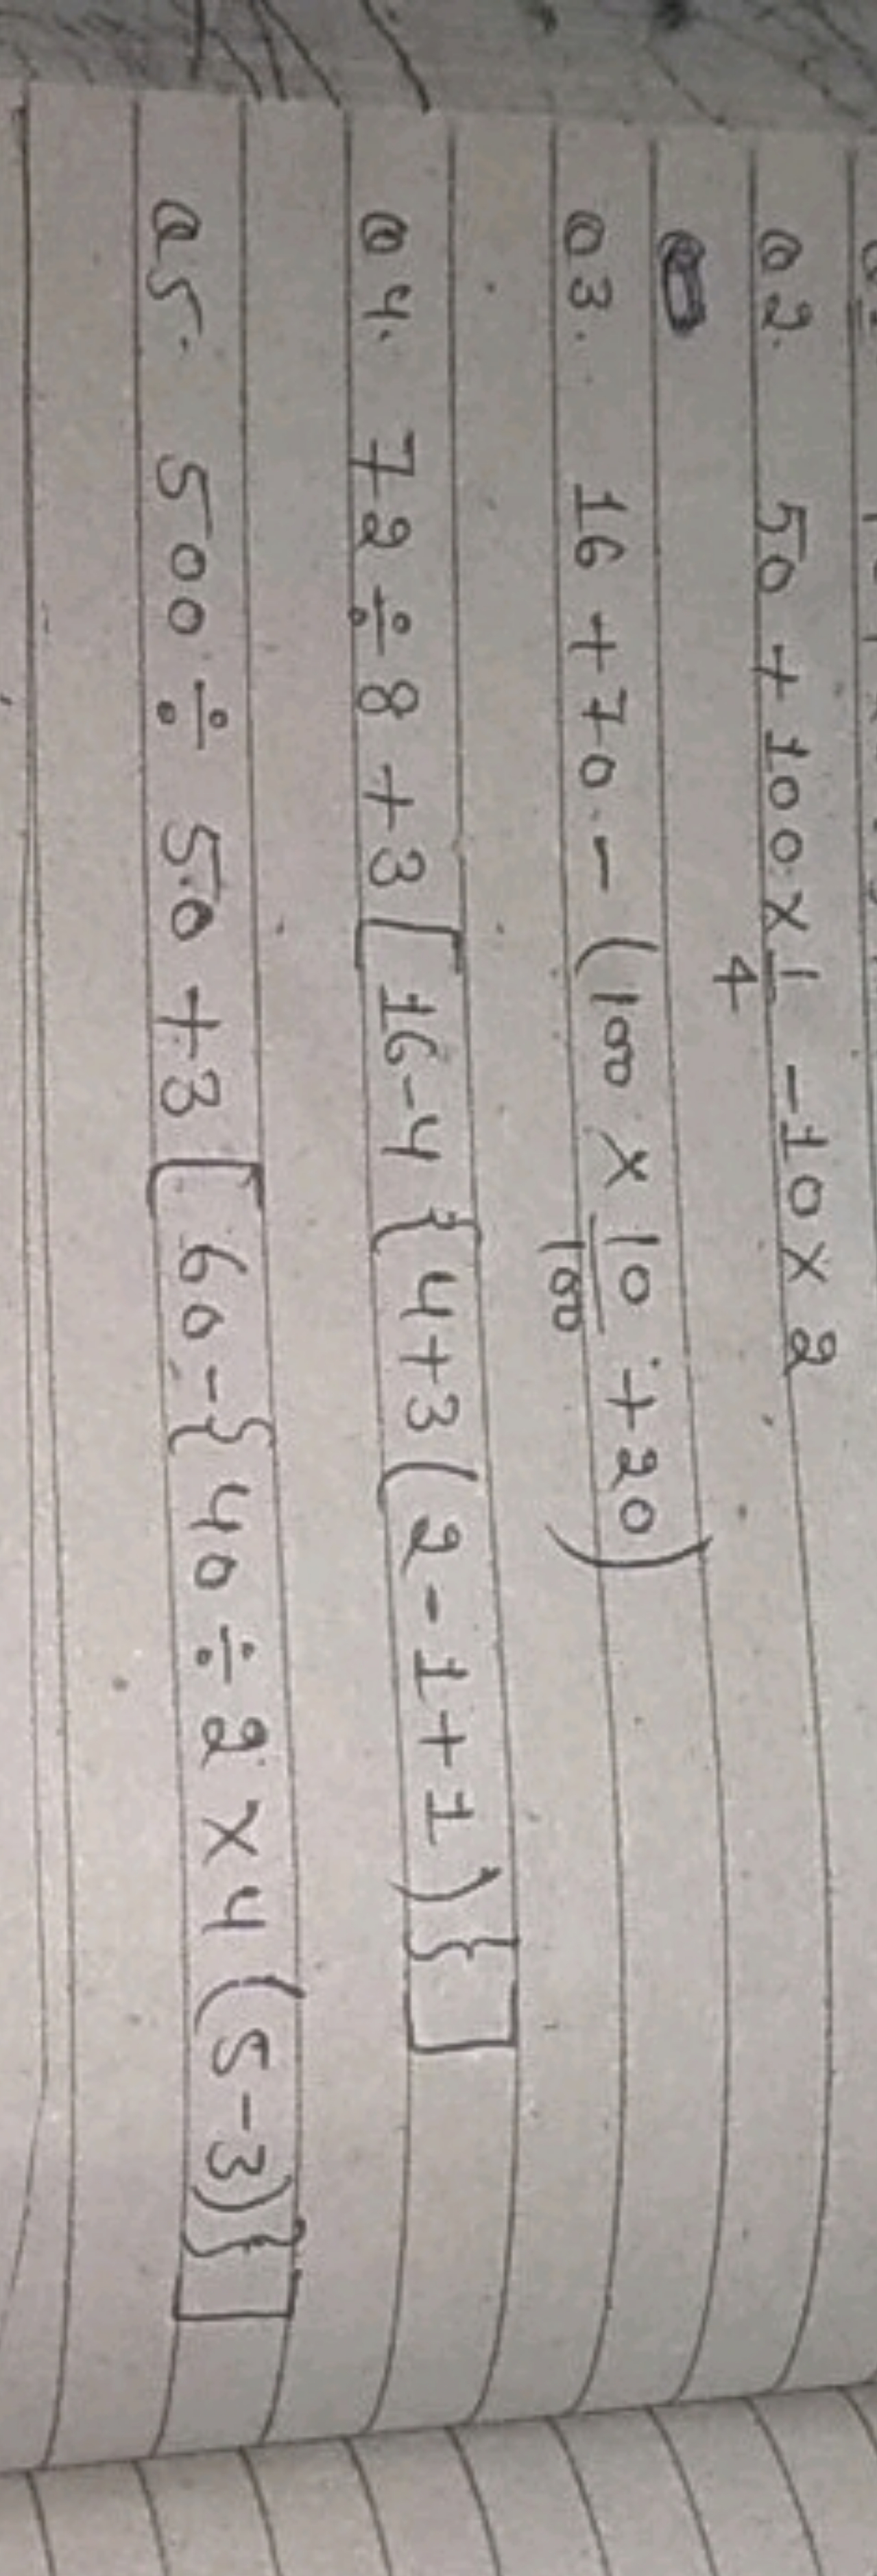 Q2. 50 + 100 × 1/4 - 10 × 2
Q3. 16 + 70 - (100 × 10/100 + 20)
Q4. 72 ÷ 8 + 3 [16 - 4 {4 + 3 (2 - 1 + 1)}]
Q5. 500 ÷ 50 + 3 [60 - {40 ÷ 2 × 4 (5 - 3)}]